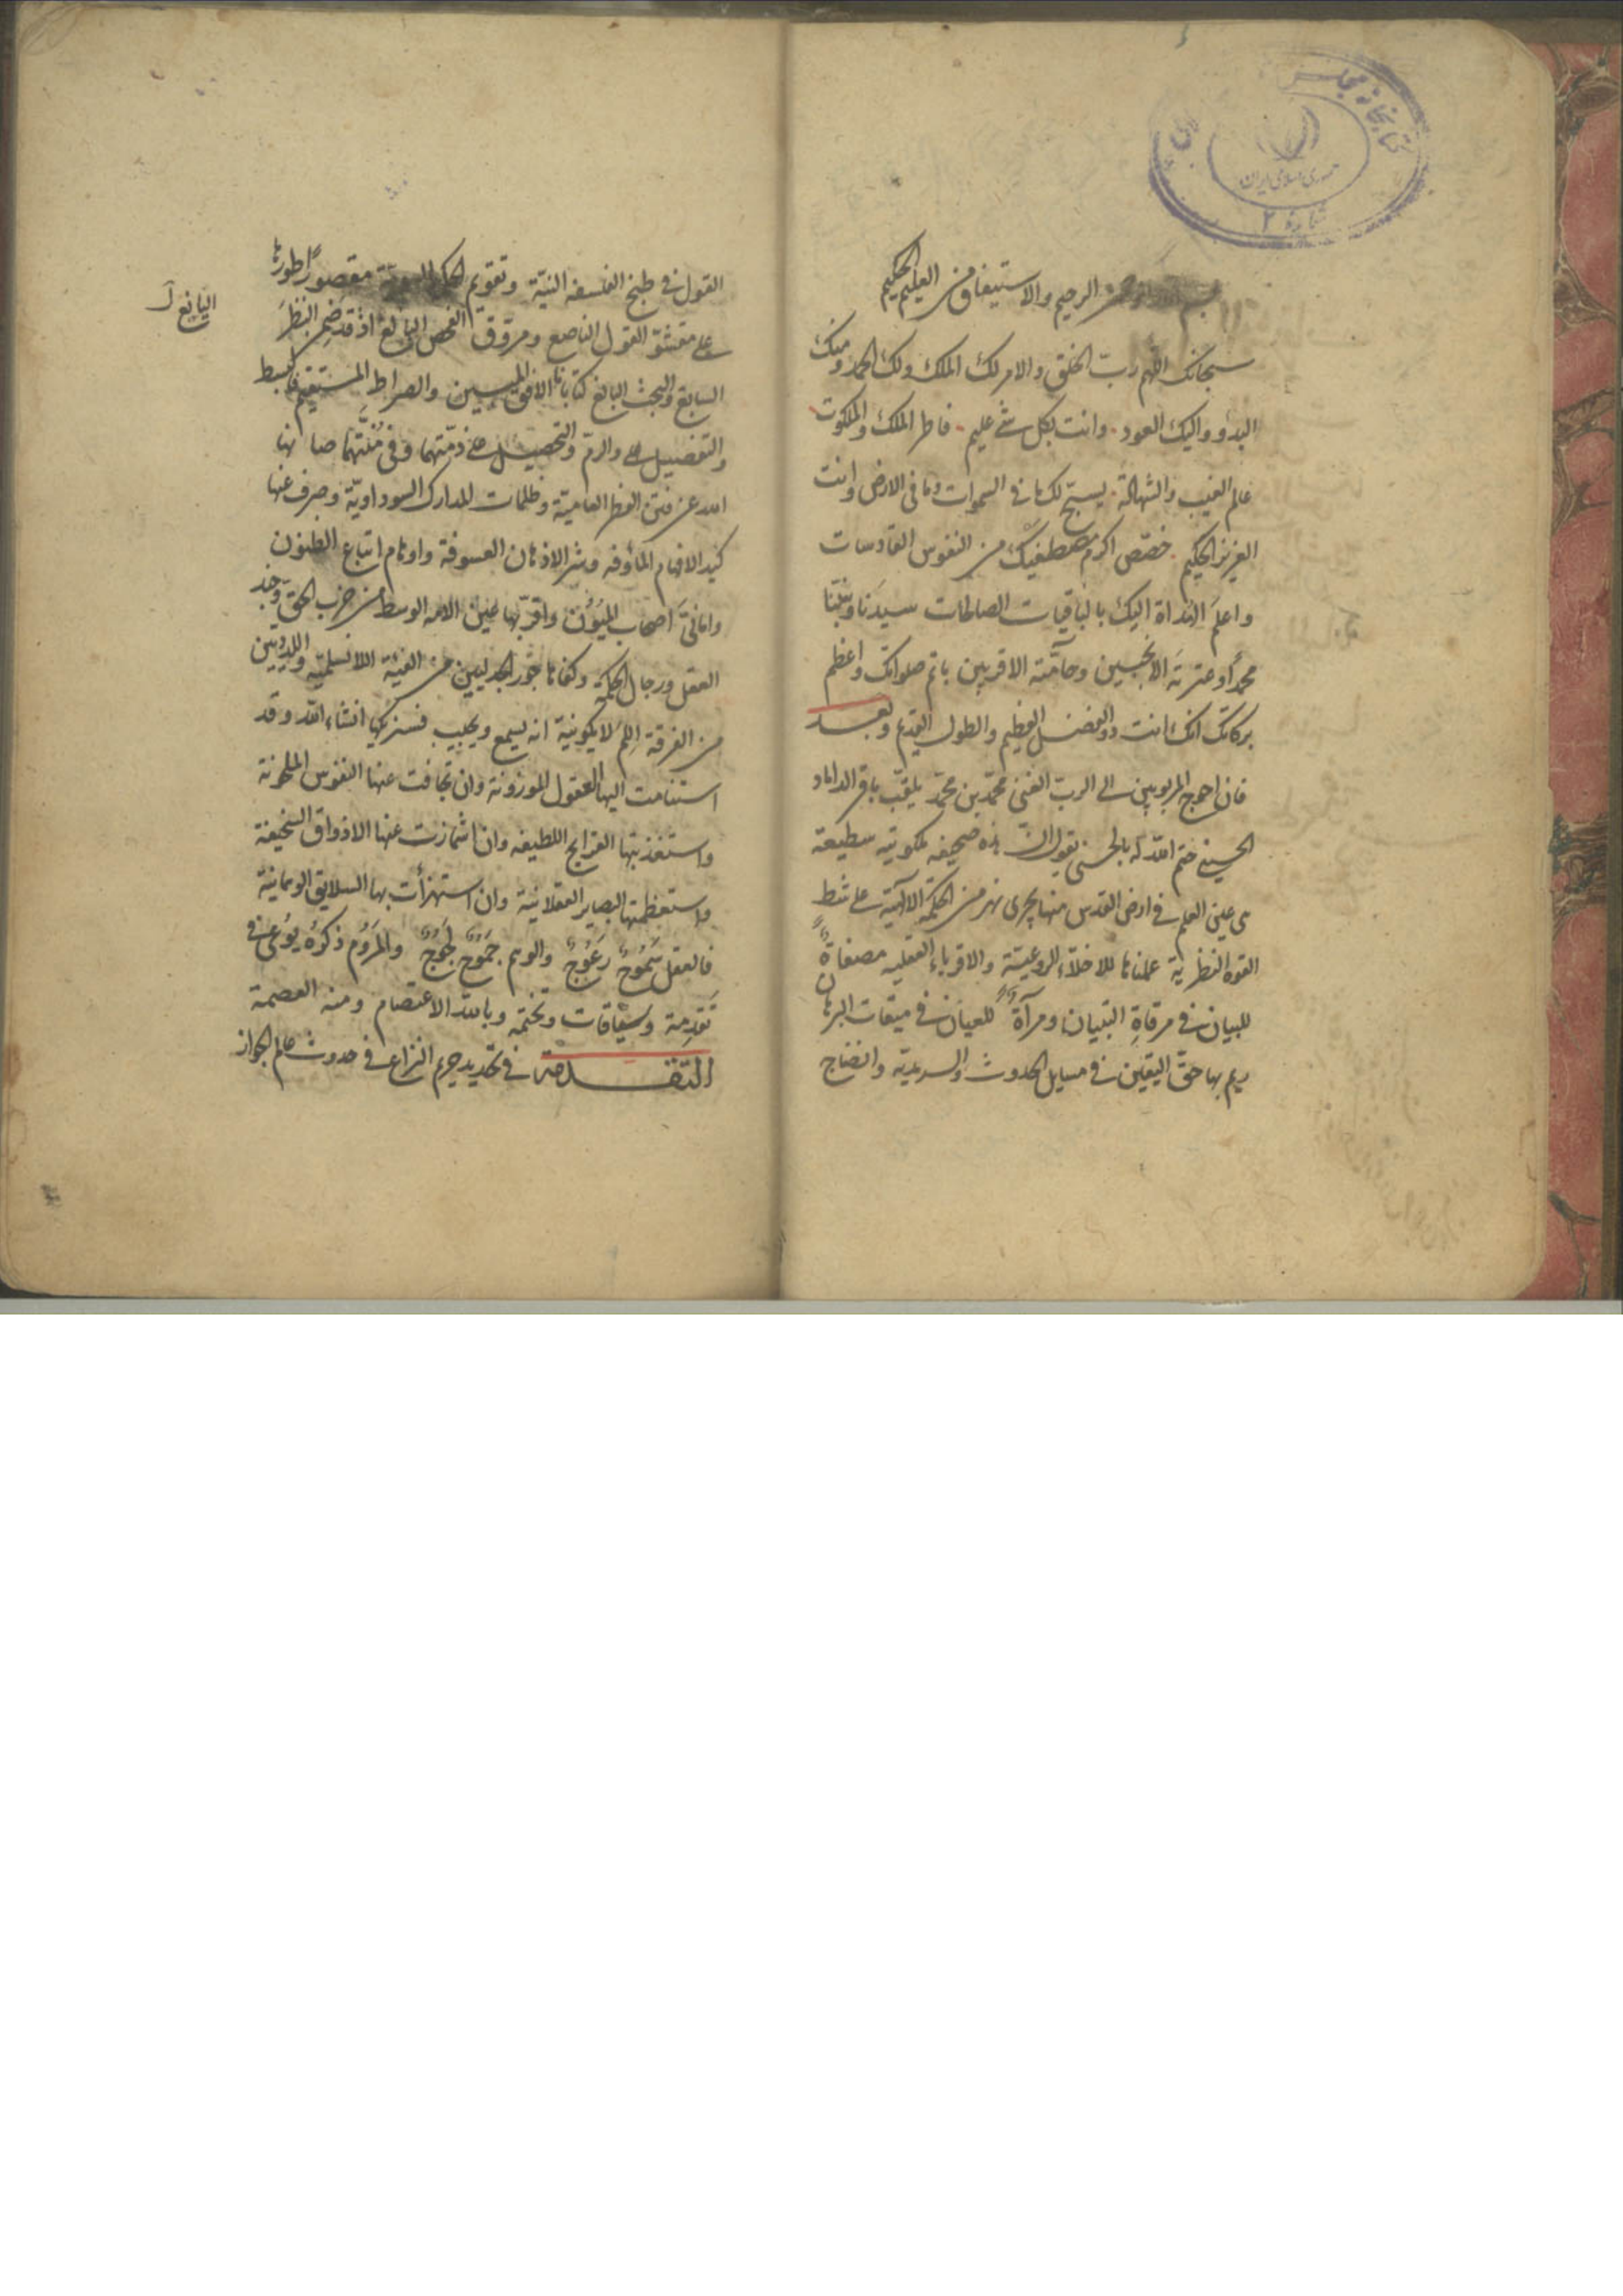 كتابخانه مجلس
جمهوری اسلامی ایران
شماره ۲
بسم الله الرحمن الرحيم والاستيفاق من العليم الحكيم
سبحانك اللهم رب الخلق والامر لك الملك ولك الحمد ومنك
البدؤ واليك العود وانت بكل شئ عليم فاطر الملك والملكوت
عالم الغيب والشهادة يسبح لك ما في السموات وما في الارض وانت
العزيز الحكيم خصص اكرم مصطفيك من النفوس القادسات
واعلم الهداة اليك بالباقيات الصالحات سيدنا ونبينا
محمدا وعترته الانجبين وحامته الاقربين باتم صلواتك واعظم
بركاتك انك انت ذو الفضل العظيم والطول القديم وبعد
فان احوج المربوبين الى الرب الغنى محمد بن محمد يلقب باقر الداماد
الحسيني ختم الله له بالحسنى يقول ان هذه صحيفه ملكوتيه سطيعة
هي عين العلم في ارض القدس منها يجرى نهر من الحكمة الالهية على شط
القوه النظرية عملناها للاخلاء الروعيتة والاقرباء العقليه مصفاة
للبيان في مرقاة التبيان ومرآة للعيان في ميقات البرهان
يرم بها حق اليقين في مسايل الحدوث والسرمدية وانضاج
القول في طبخ الفلسفه النيّة وتقويم الحكمة مقصورا طورها
على مقشو القول الناصع ومروق الفحص اليالغ اذ قد ضم النظر
اليانع ل
السابع والبحث البالغ كتابانا الافق المبين والصراط المستقيم فالبسط
والتفصيل على والرم والتحصيل على ذمتهما وفي منتهما صانها
الله عن فتن الفطر العامية وظلمات المدارك السوداوية وصرف عنها
كيد الافهام المأوفه وشر الاذهان العسوفة واوهام اتباع الظنون
وامانى اصحاب الميون واقر بها عين الامه الوسط من حزب الحق وجند
العقل ورجال الحكمة وكفاها جور الجدليين من الفئة اللانسلمية واللدديين
من الفرقة اللم لا يكونية انه يسمع ويجيب فسنزكيها انشاء الله وقد
استنامت اليها العقول الموزونة وان تجافت عنها النفوس الملحونة
واستعذبتها القرايح اللطيفه وان اشمازت عنها الاذواق السخيفة
واستعظمتها البصاير العقلانية وان استهزأت بها السلايق الوهمانية
فالعقل سموح رعوج والوهم جموح لجوج والمروم ذكره يوعى في
تقدمة وسياقات وتختمه وبالله الاعتصام ومنه العصمة
التقدمة في تحديد حريم النزاع في حدوث عالم الجواز